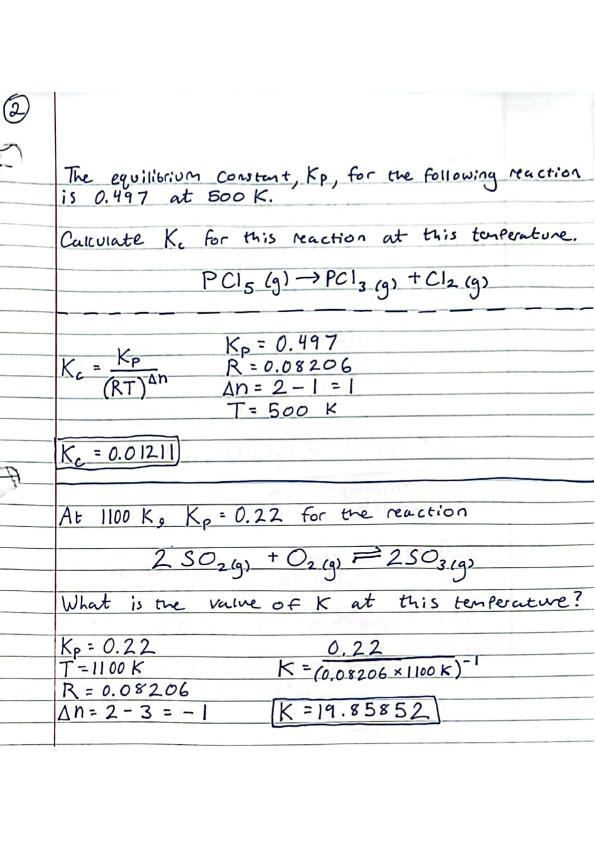 ②
The equilibrium constant, Kp, for the following reaction
is 0.497 at 500 K.
Calculate Kc for this reaction at this temperature.
PCl5 (g) → PCl3 (g) + Cl2 (g)
Kc = Kp / (RT)^Δn
Kp = 0.497
R = 0.08206
Δn = 2 - 1 = 1
T = 500 K
Kc = 0.01211
At 1100 K, Kp = 0.22 for the reaction
2 SO2 (g) + O2 (g) ⇌ 2 SO3 (g)
What is the value of K at this temperature?
Kp = 0.22
T = 1100 K
R = 0.08206
Δn = 2 - 3 = -1
K = 0.22 / (0.08206 × 1100 K)^-1
K = 19.85852